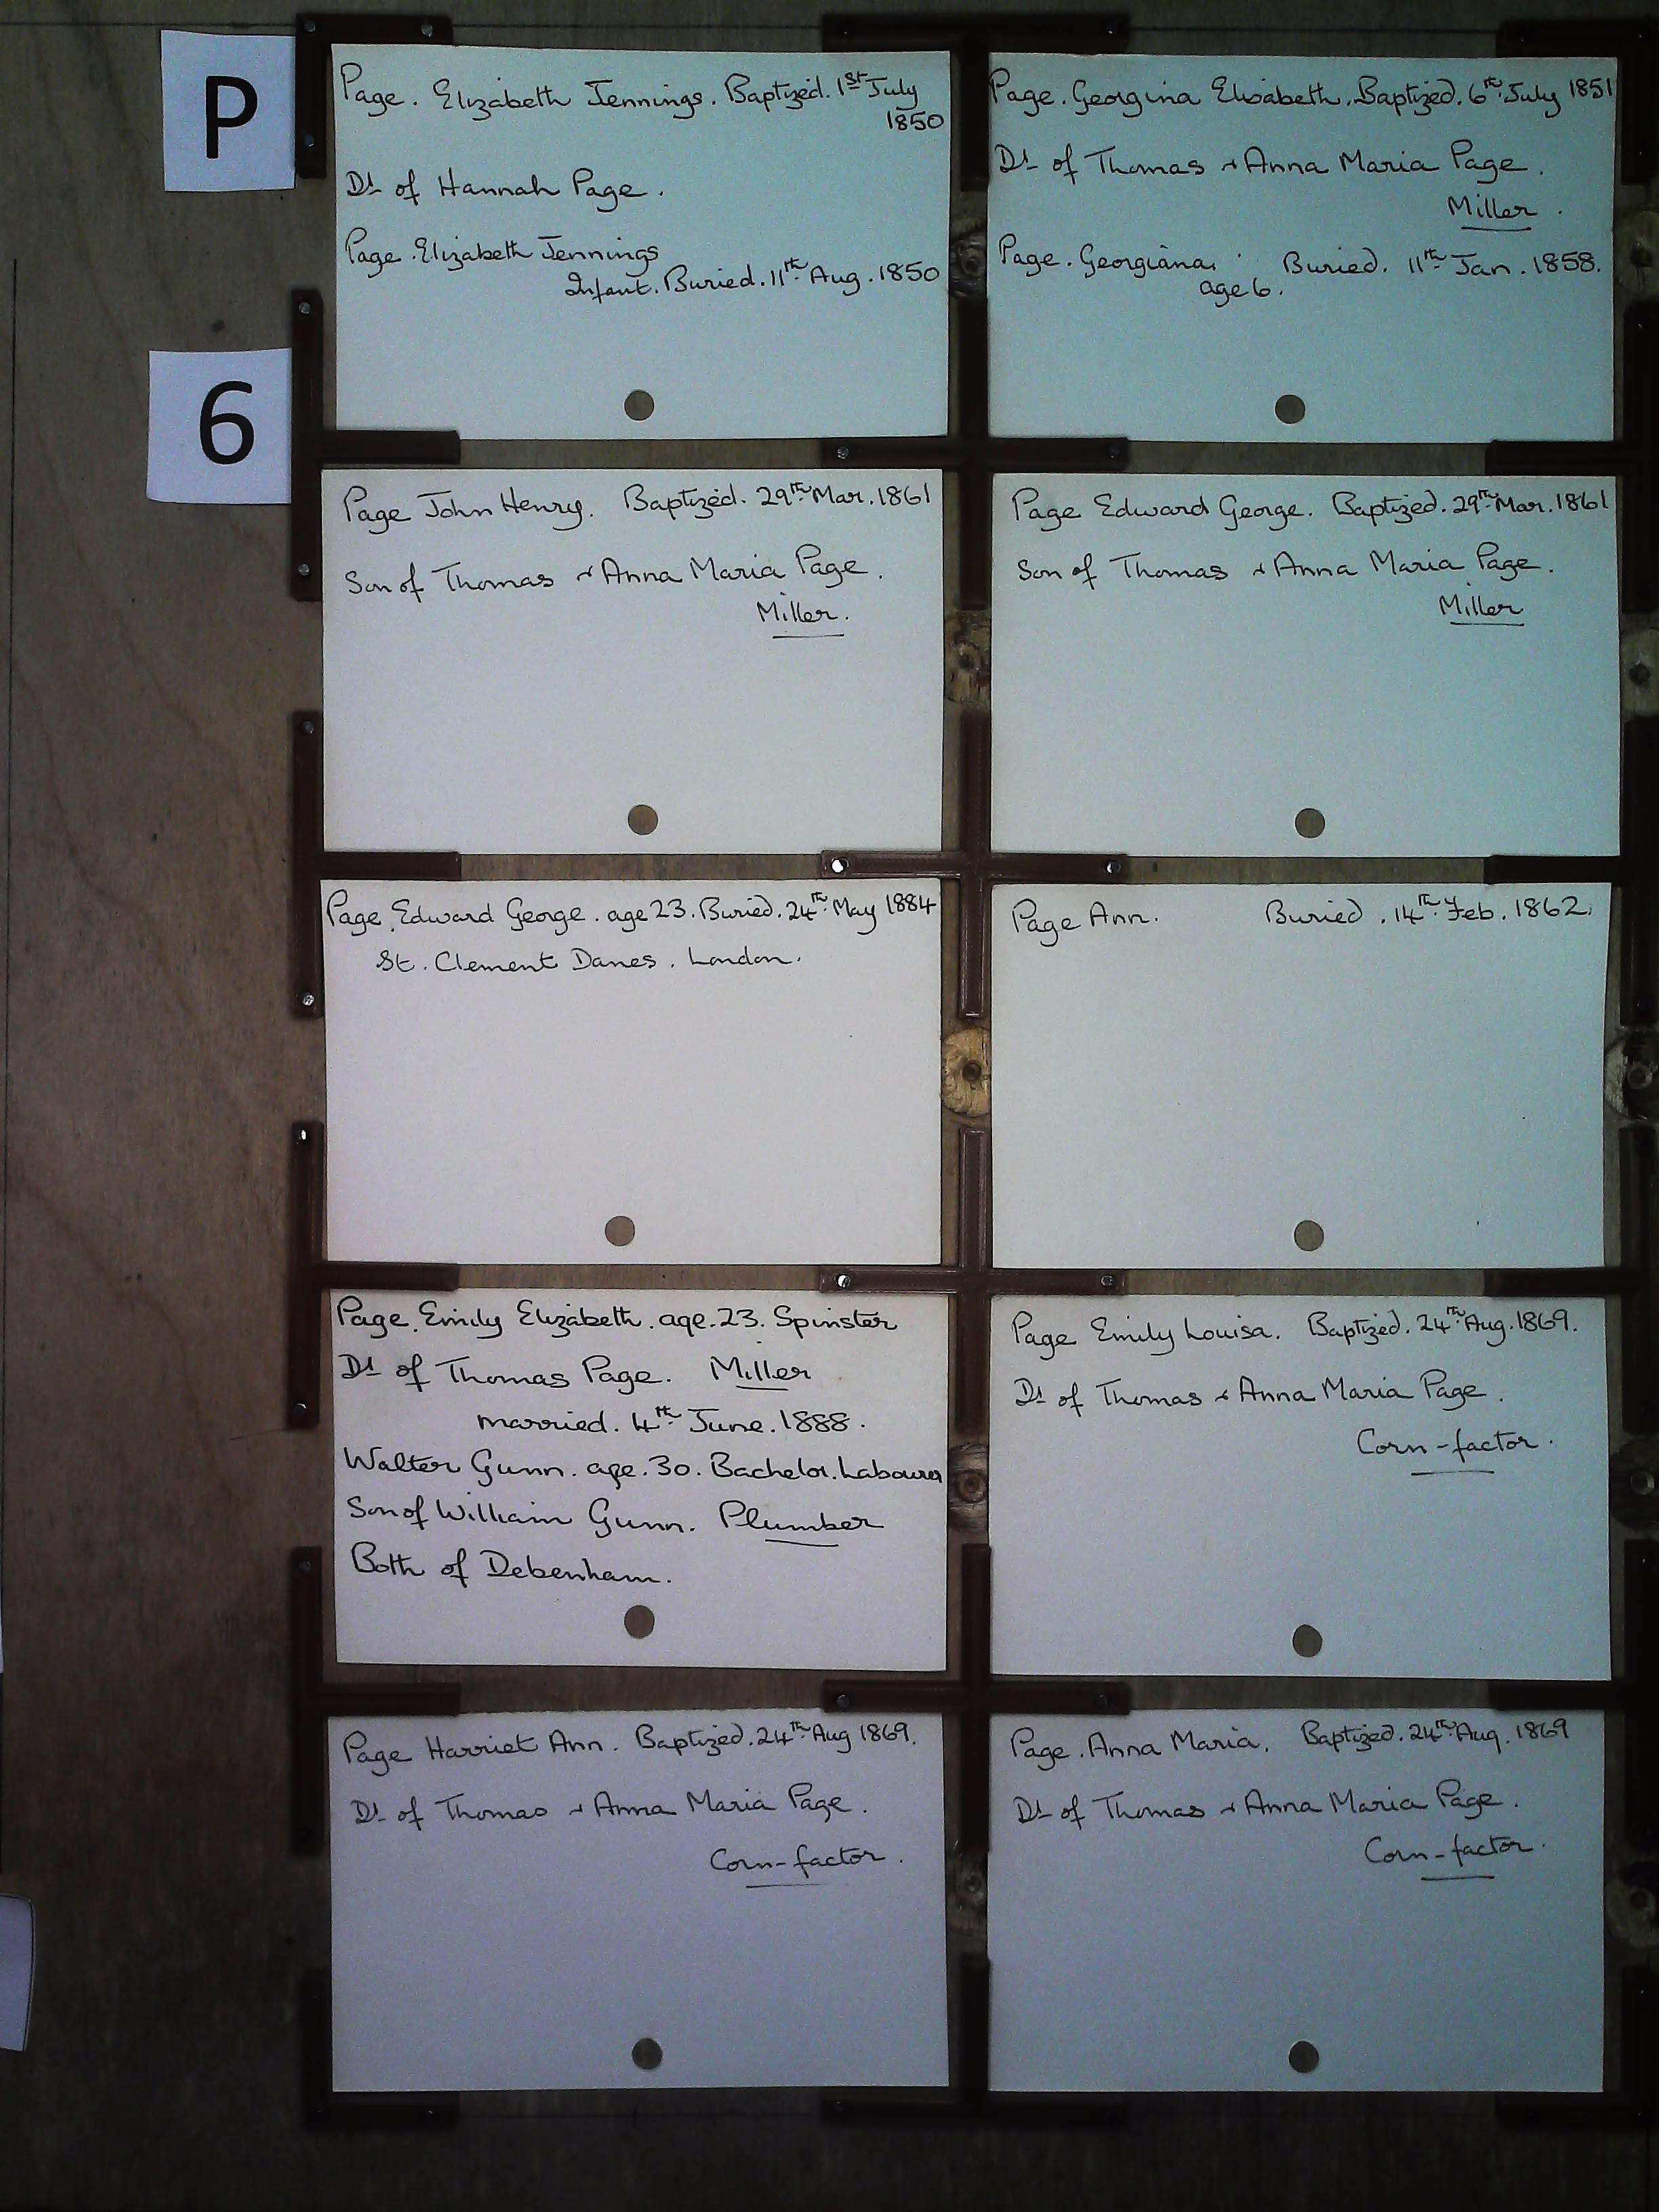 P
6
Page. Elizabeth Jennings. Baptized. 1st July
1850
Dt of Hannah Page.
Page. Elizabeth Jennings
Infant. Buried. 11th Aug. 1850
Page. Georgina Elisabeth. Baptized. 6th July 1851
Dt of Thomas & Anna Maria Page.
Miller.
Page. Georgiana. Buried. 11th Jan. 1858.
age 6.
Page John Henry. Baptized. 29th Mar. 1861
Son of Thomas & Anna Maria Page.
Miller.
Page Edward George. Baptized. 29th Mar. 1861
Son of Thomas & Anna Maria Page.
Miller
Page. Edward George. age 23. Buried. 24th May 1884
St. Clement Danes. London.
Page Ann. Buried. 14th Feb. 1862.
Page. Emily Elizabeth. age. 23. Spinster
Dt of Thomas Page. Miller
married. 4th June. 1888.
Walter Gunn. age. 30. Bachelor. Labourer
Son of William Gunn. Plumber
Both of Debenham.
Page Emily Louisa. Baptized. 24th Aug. 1869.
Dt of Thomas & Anna Maria Page.
Corn-factor.
Page Harriet Ann. Baptized. 24th Aug 1869.
Dt of Thomas & Anna Maria Page.
Corn-factor.
Page. Anna Maria. Baptized. 24th Aug. 1869
Dt of Thomas & Anna Maria Page.
Corn-factor.